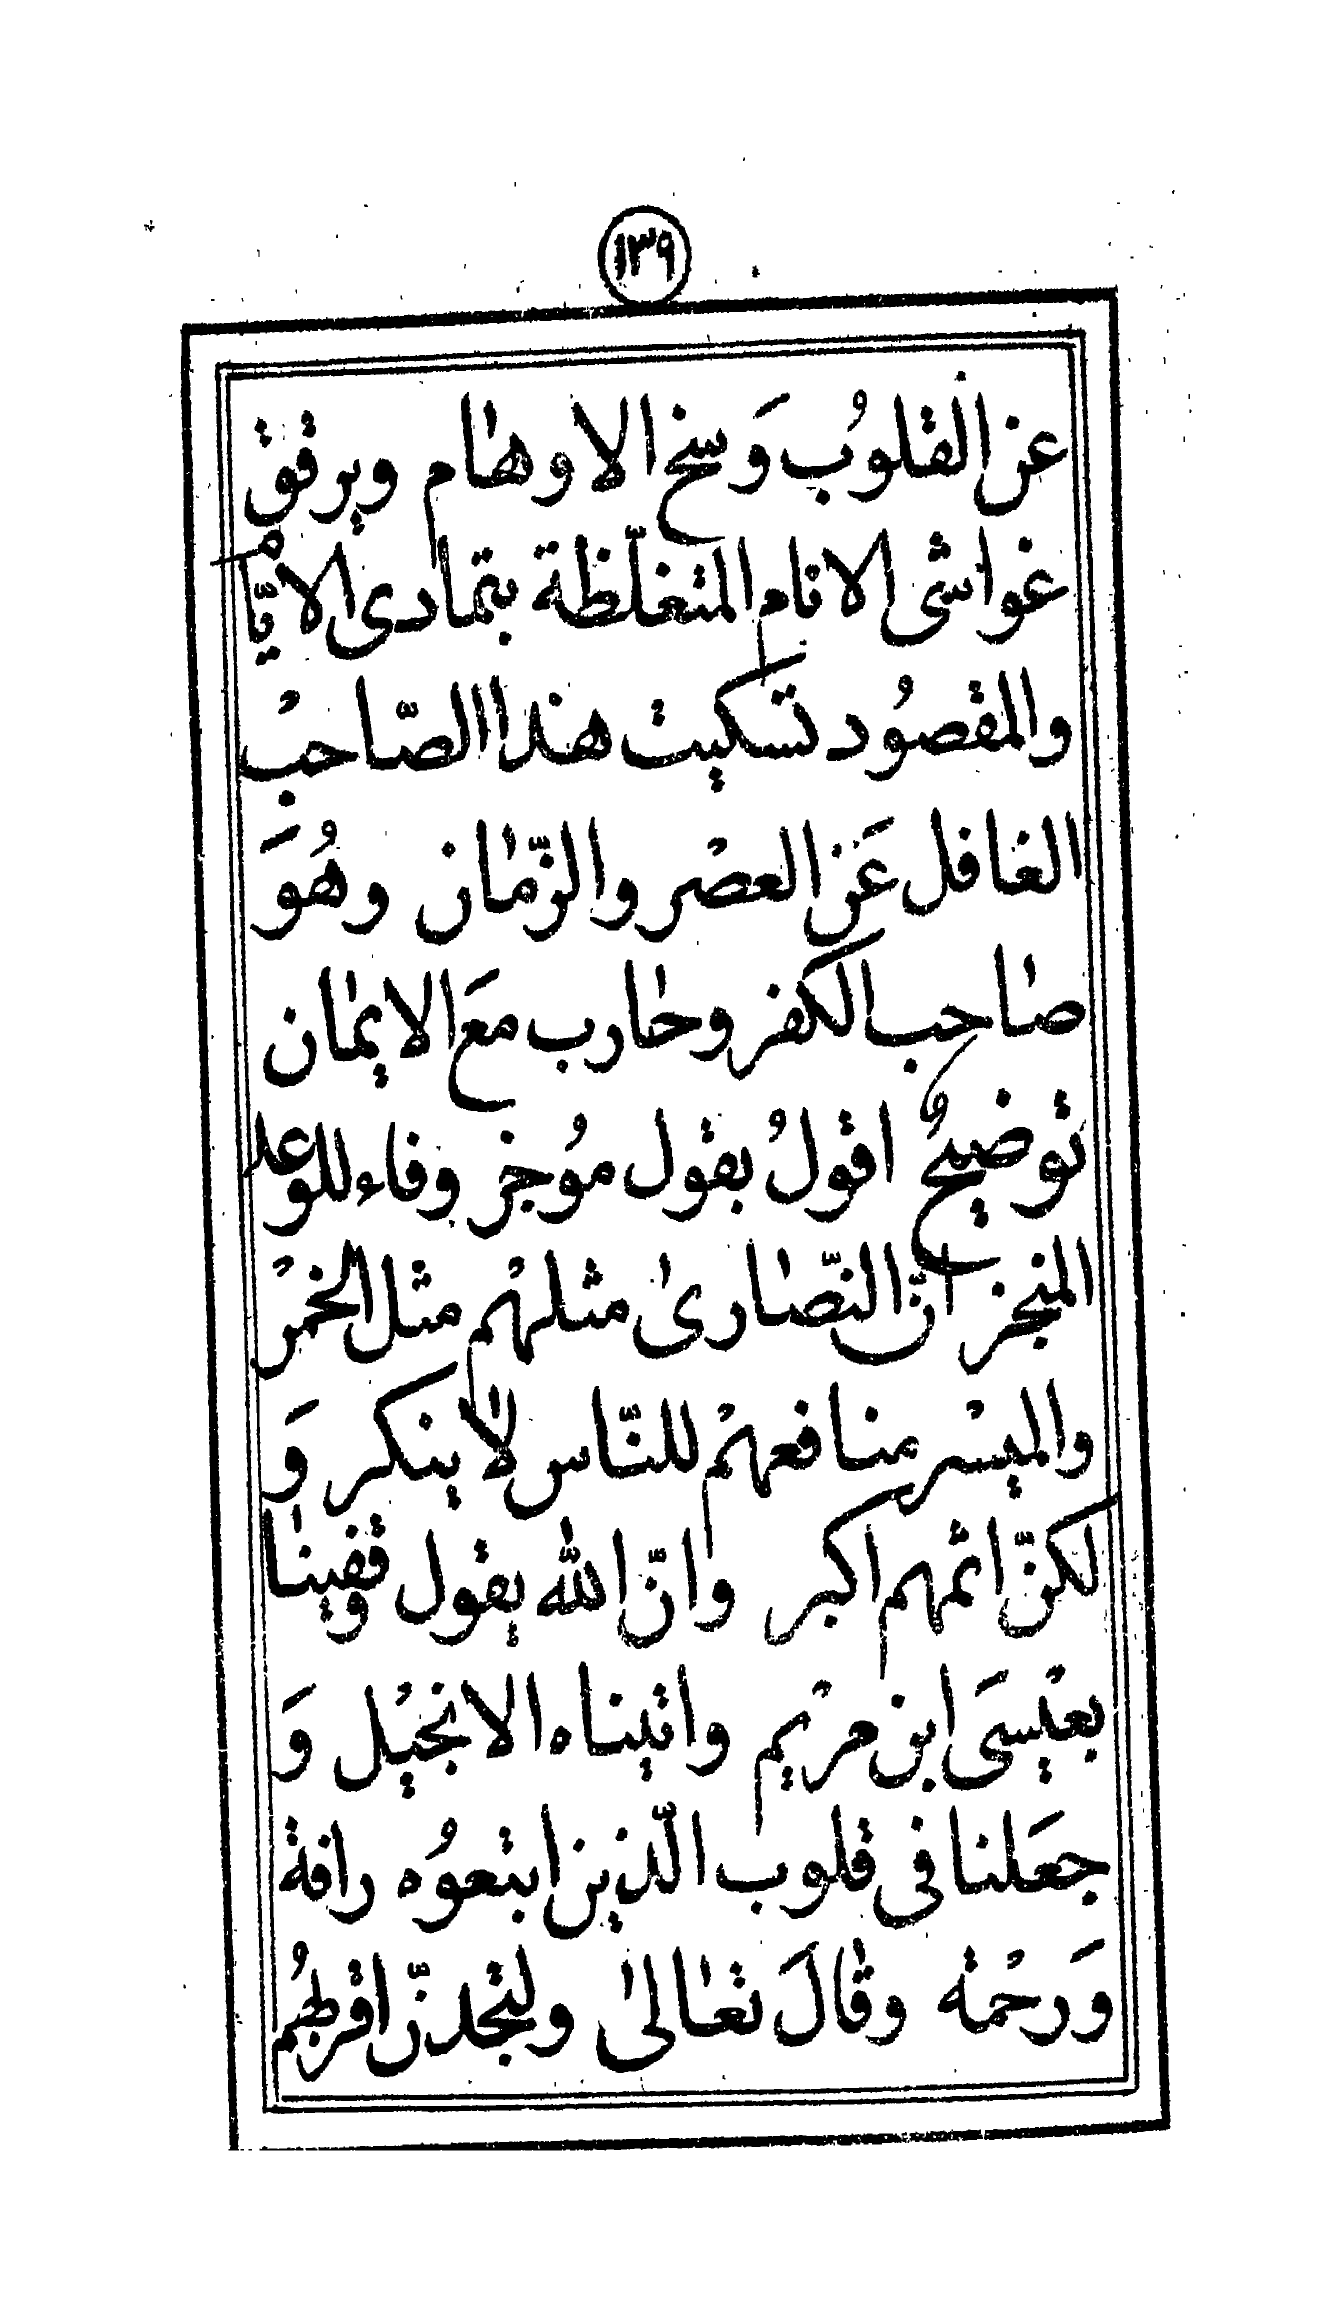 ١٣٩
عن القلوُب وَسخ الاوهٰام ويرقق
غواشى الانام المتغلّظة بتمادى الايّام
والمقصُود تسكيت هذا الصّاحبْ
الغافل عَن العصْر والزّمٰان وهُوَ
صٰاحب الكفر وحٰارب معَ الايمٰان
توضيحُ اقولُ بقول موُجز وفاء للوعد
المنجز انّ النّصٰارىٰ مثلهْم مثل الخمرْ
والميسْر منافعهْم للنّاس لاٰ ينكر وَ
لكنّ اثمهم اكبر وانّ الله يقول وقفينٰا
بعيْسىَ ابن مرْيم واتيناه الانجيُل وَ
جعَلنا فى قلوب الّذين ابتعوُه رافة
وَرحْمة وقٰالَ تعٰالىٰ ولتجدنّ اقربهُم